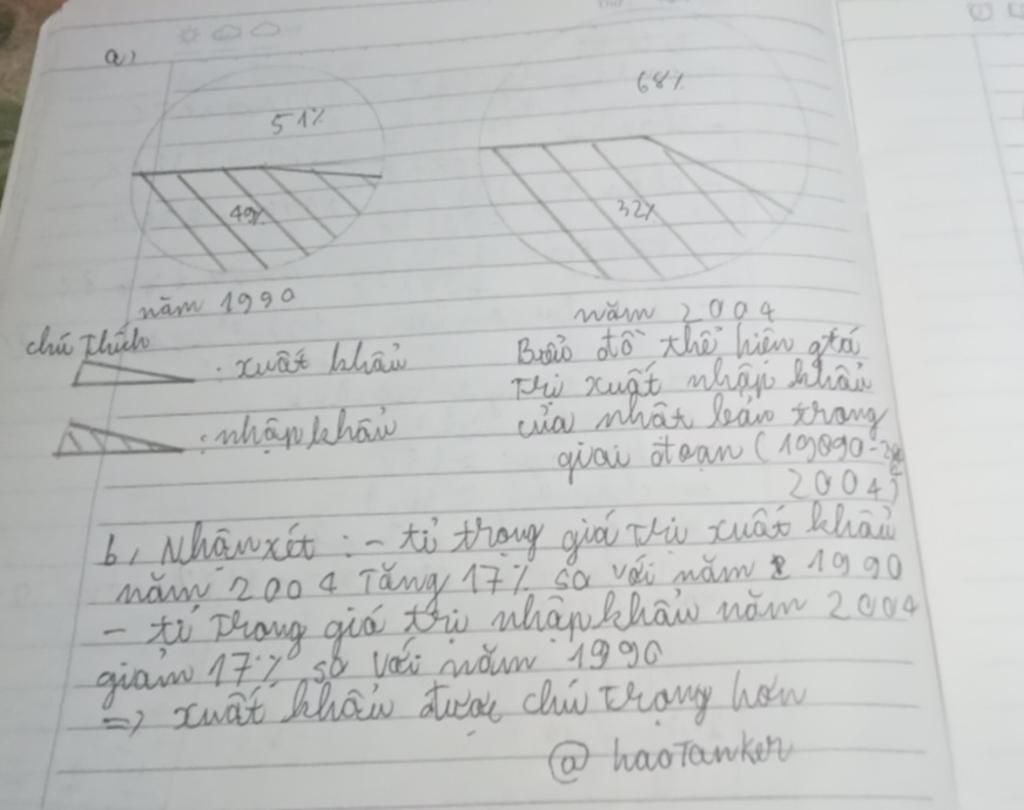 a,
51%
68%
49%
32%
năm 1990
năm 2004
chú thích
: xuất khẩu
: nhập khẩu
Biểu đồ thể hiện giá
trị xuất nhập khẩu
của nhật bản trong
giai đoạn (19090-
2004)
b, Nhận xét : - tỉ trọng giá trị xuất khẩu
năm 2004 tăng 17% so với năm 1990
- tỉ trọng giá trị nhập khẩu năm 2004
giảm 17% so với năm 1990
=> xuất khẩu được chú trọng hơn
@ haoTanker